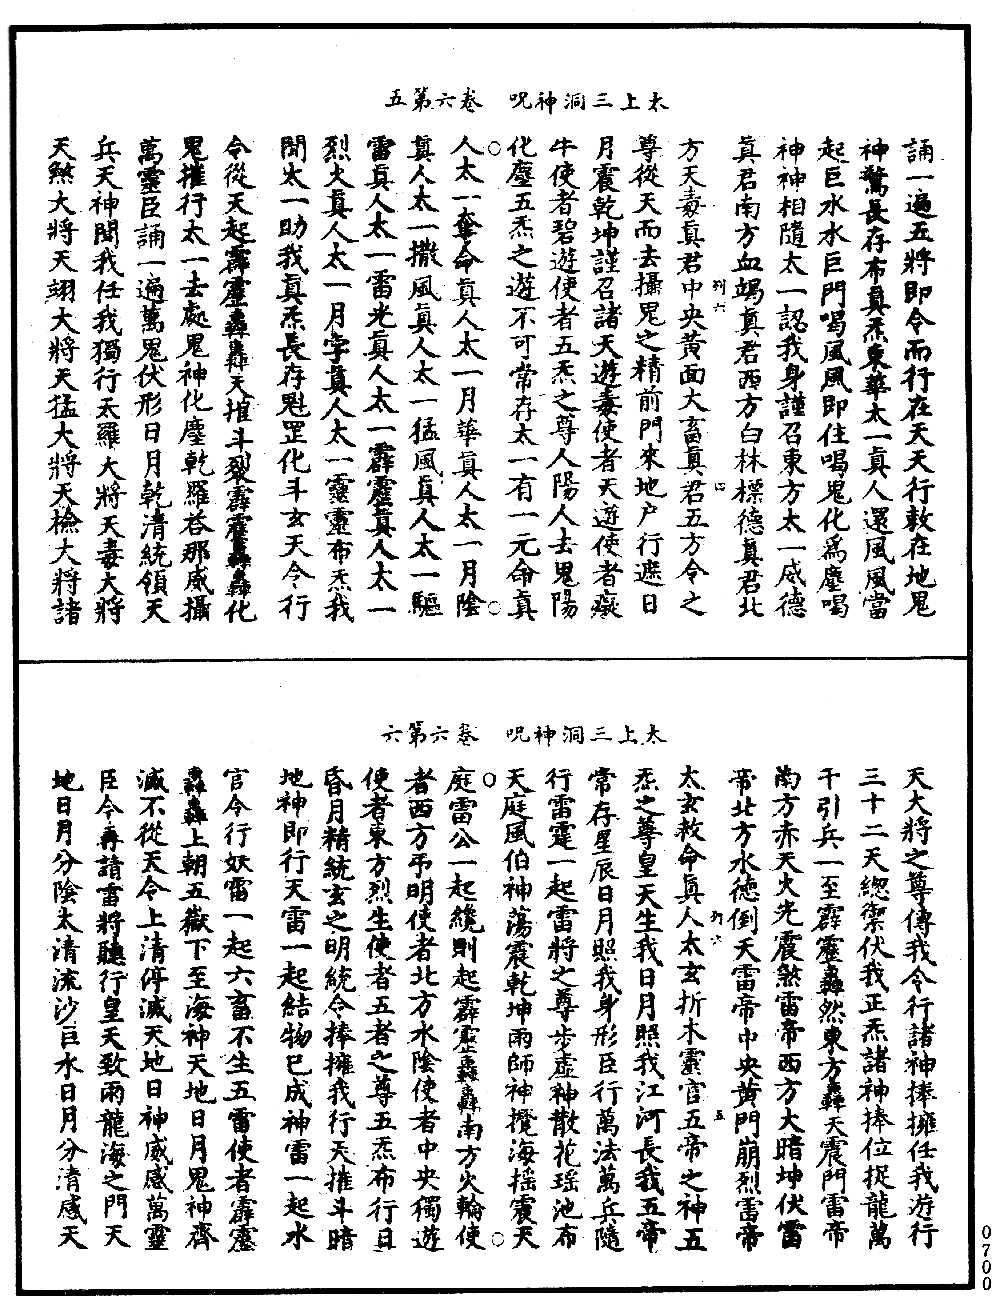 太上三洞神呪　卷六第五
誦一遍五將即令而行在天天行教在地鬼
神驚長存布真炁東華太一真人還風風當
起巨水水巨門喝風風即住喝鬼化爲塵喝
神神相隨太一認我身謹召東方太一威德
真君南方血竭真君西方白林標德真君北
方天毒真君中央黃面大畜真君五方令之
列六
四
尊從天而去攝鬼之精前門來地户行遮日
月震乾坤謹召諸天遊毒使者天遊使者癡
牛使者碧遊使者五炁之尊人陽人去鬼陽
化塵五炁之遊不可常存太一有一元命真
人太一奪命真人太一月華真人太一月陰
真人太一撒風真人太一猛風真人太一驅
雷真人太一雷光真人太一霹靂真人太一
烈火真人太一月孛真人太一靈靈布炁我
聞太一助我真炁長存魁罡化斗玄天令行
令從天起霹靂轟轟天摧斗裂霹靂轟轟化
鬼摧行太一去處鬼神化塵乾羅荅那威攝
萬靈臣誦一遍萬鬼伏形日月乾清統領天
兵天神聞我任我獨行太羅大將天毒大將
天煞大將天翊大將天猛大將天檢大將諸
太上三洞神呪　卷六第六
天大將之尊傳我令行諸神捧擁任我遊行
三十二天總禦伏我正炁諸神捧位捉龍萬
千引兵一至霹靂轟然東方轟天震門雷帝
南方赤天火光震煞雷帝西方大暗坤伏雷
帝北方水德倒天雷帝中央黃門崩烈雷帝
太玄教命真人太玄折木靈官五帝之神五
列六
五
炁之尊皇天生我日月照我江河長我五帝
常存星辰日月照我身形臣行萬法萬兵隨
行雷霆一起雷將之尊步虛神散花瑶池布
天庭風伯神蕩震乾坤雨師神攪海摇震天
庭雷公一起繞則起霹靂轟轟南方火輪使
者西方弔明使者北方水陰使者中央獨遊
使者東方烈生使者五者之尊五炁布行日
昏月精統玄之明統令捧擁我行天摧斗暗
地神即行天雷一起結物已成神雷一起水
官令行妖雷一起六畜不生五雷使者霹靂
轟轟上朝五嶽下至海神天地日月鬼神齊
滅不從天令上清停滅天地日神威感萬靈
臣今再請雷將聽行皇天致雨龍海之門天
地日月分陰太清流沙巨水日月分清感天
0700